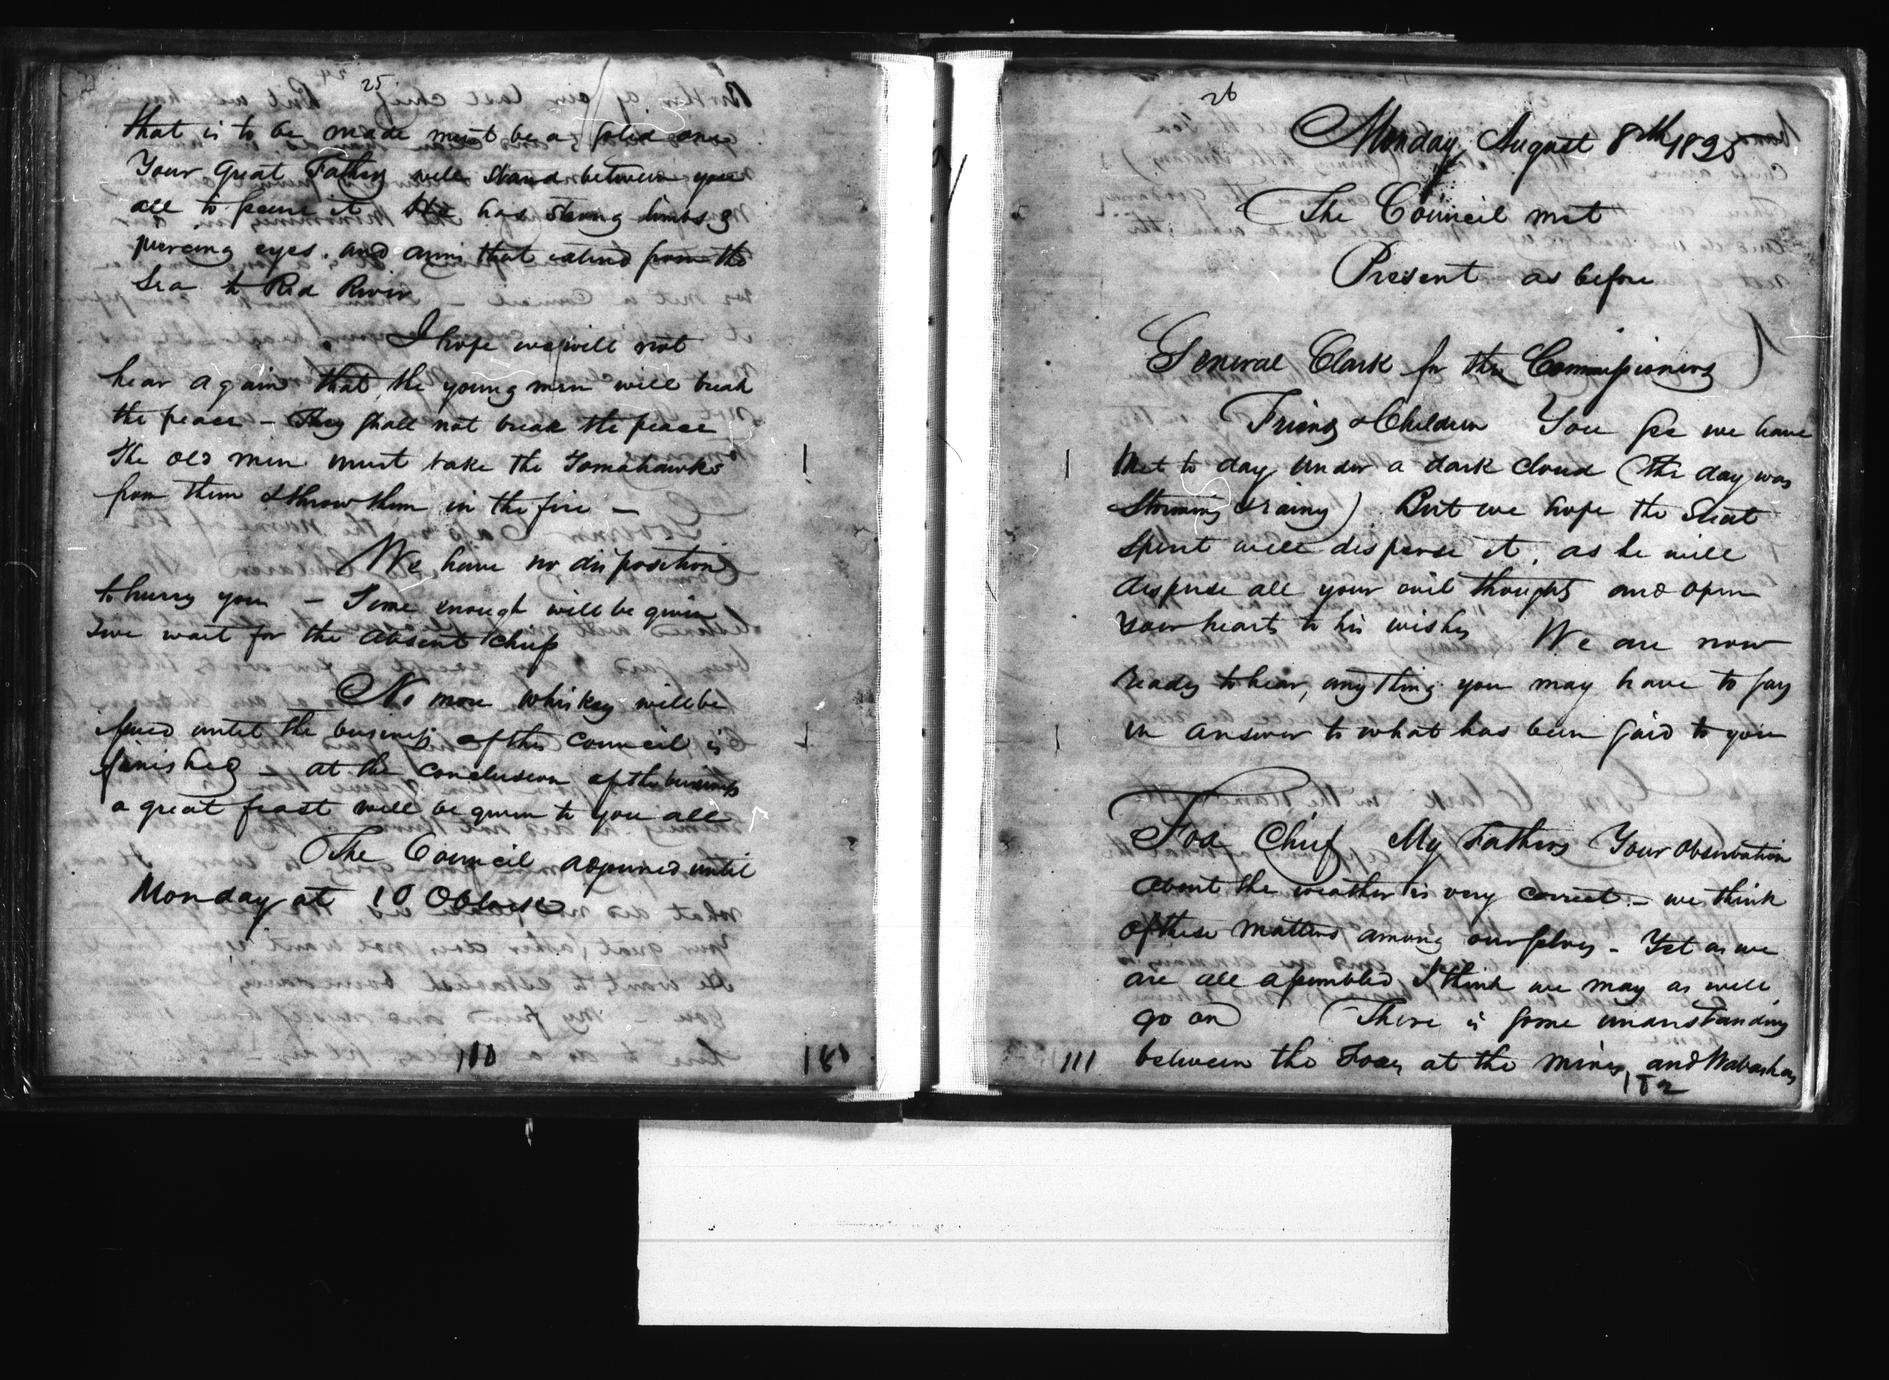 25
that is to be made must be a solid one
Your Great Father will stand between you
all to secure it He has strong limbs &
piercing eyes. and arms that extend from the
Sea to Red River
I hope we will not
hear again that the young men will break
the peace - They shall not break the peace
The old men must take the Tomahawks
from them & throw them in the fire -
We have no disposition
to hurry you - Time enough will be given
& we wait for the absent Chiefs
No more whiskey will be
issued until the business of this council is
finished - at the conclusion of the business
a great feast will be given to you all
The Council adjourned until
Monday at 10 OClock
110
181
26
Monday August 8th 1825
The Council met
Present as before
General Clark for the Commissioners
Friends & Children You see we have
Met to day under a dark cloud (the day was
Storming & rainy) But we hope the Great
Spirit will disperse it, as he will
disperse all your evil thoughts and open
Your hearts to his wishes We are now
ready to hear, any thing you may have to say
in answer to what has been said to you
Fox Chief My Fathers Your observation
about the weather is very correct - we think
of these matters among ourselves - Yet as we
are all assembled I think we may as well
go on There is some understanding
between the Foxes at the mines, and Wabashas
111
182